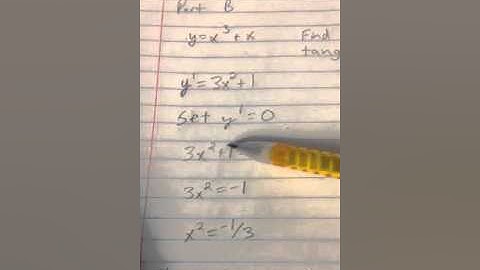 Part B
y=x³+x
Find
tang
y'=3x²+1
Set y'=0
3x²+1
3x²=-1
x²=-1/3